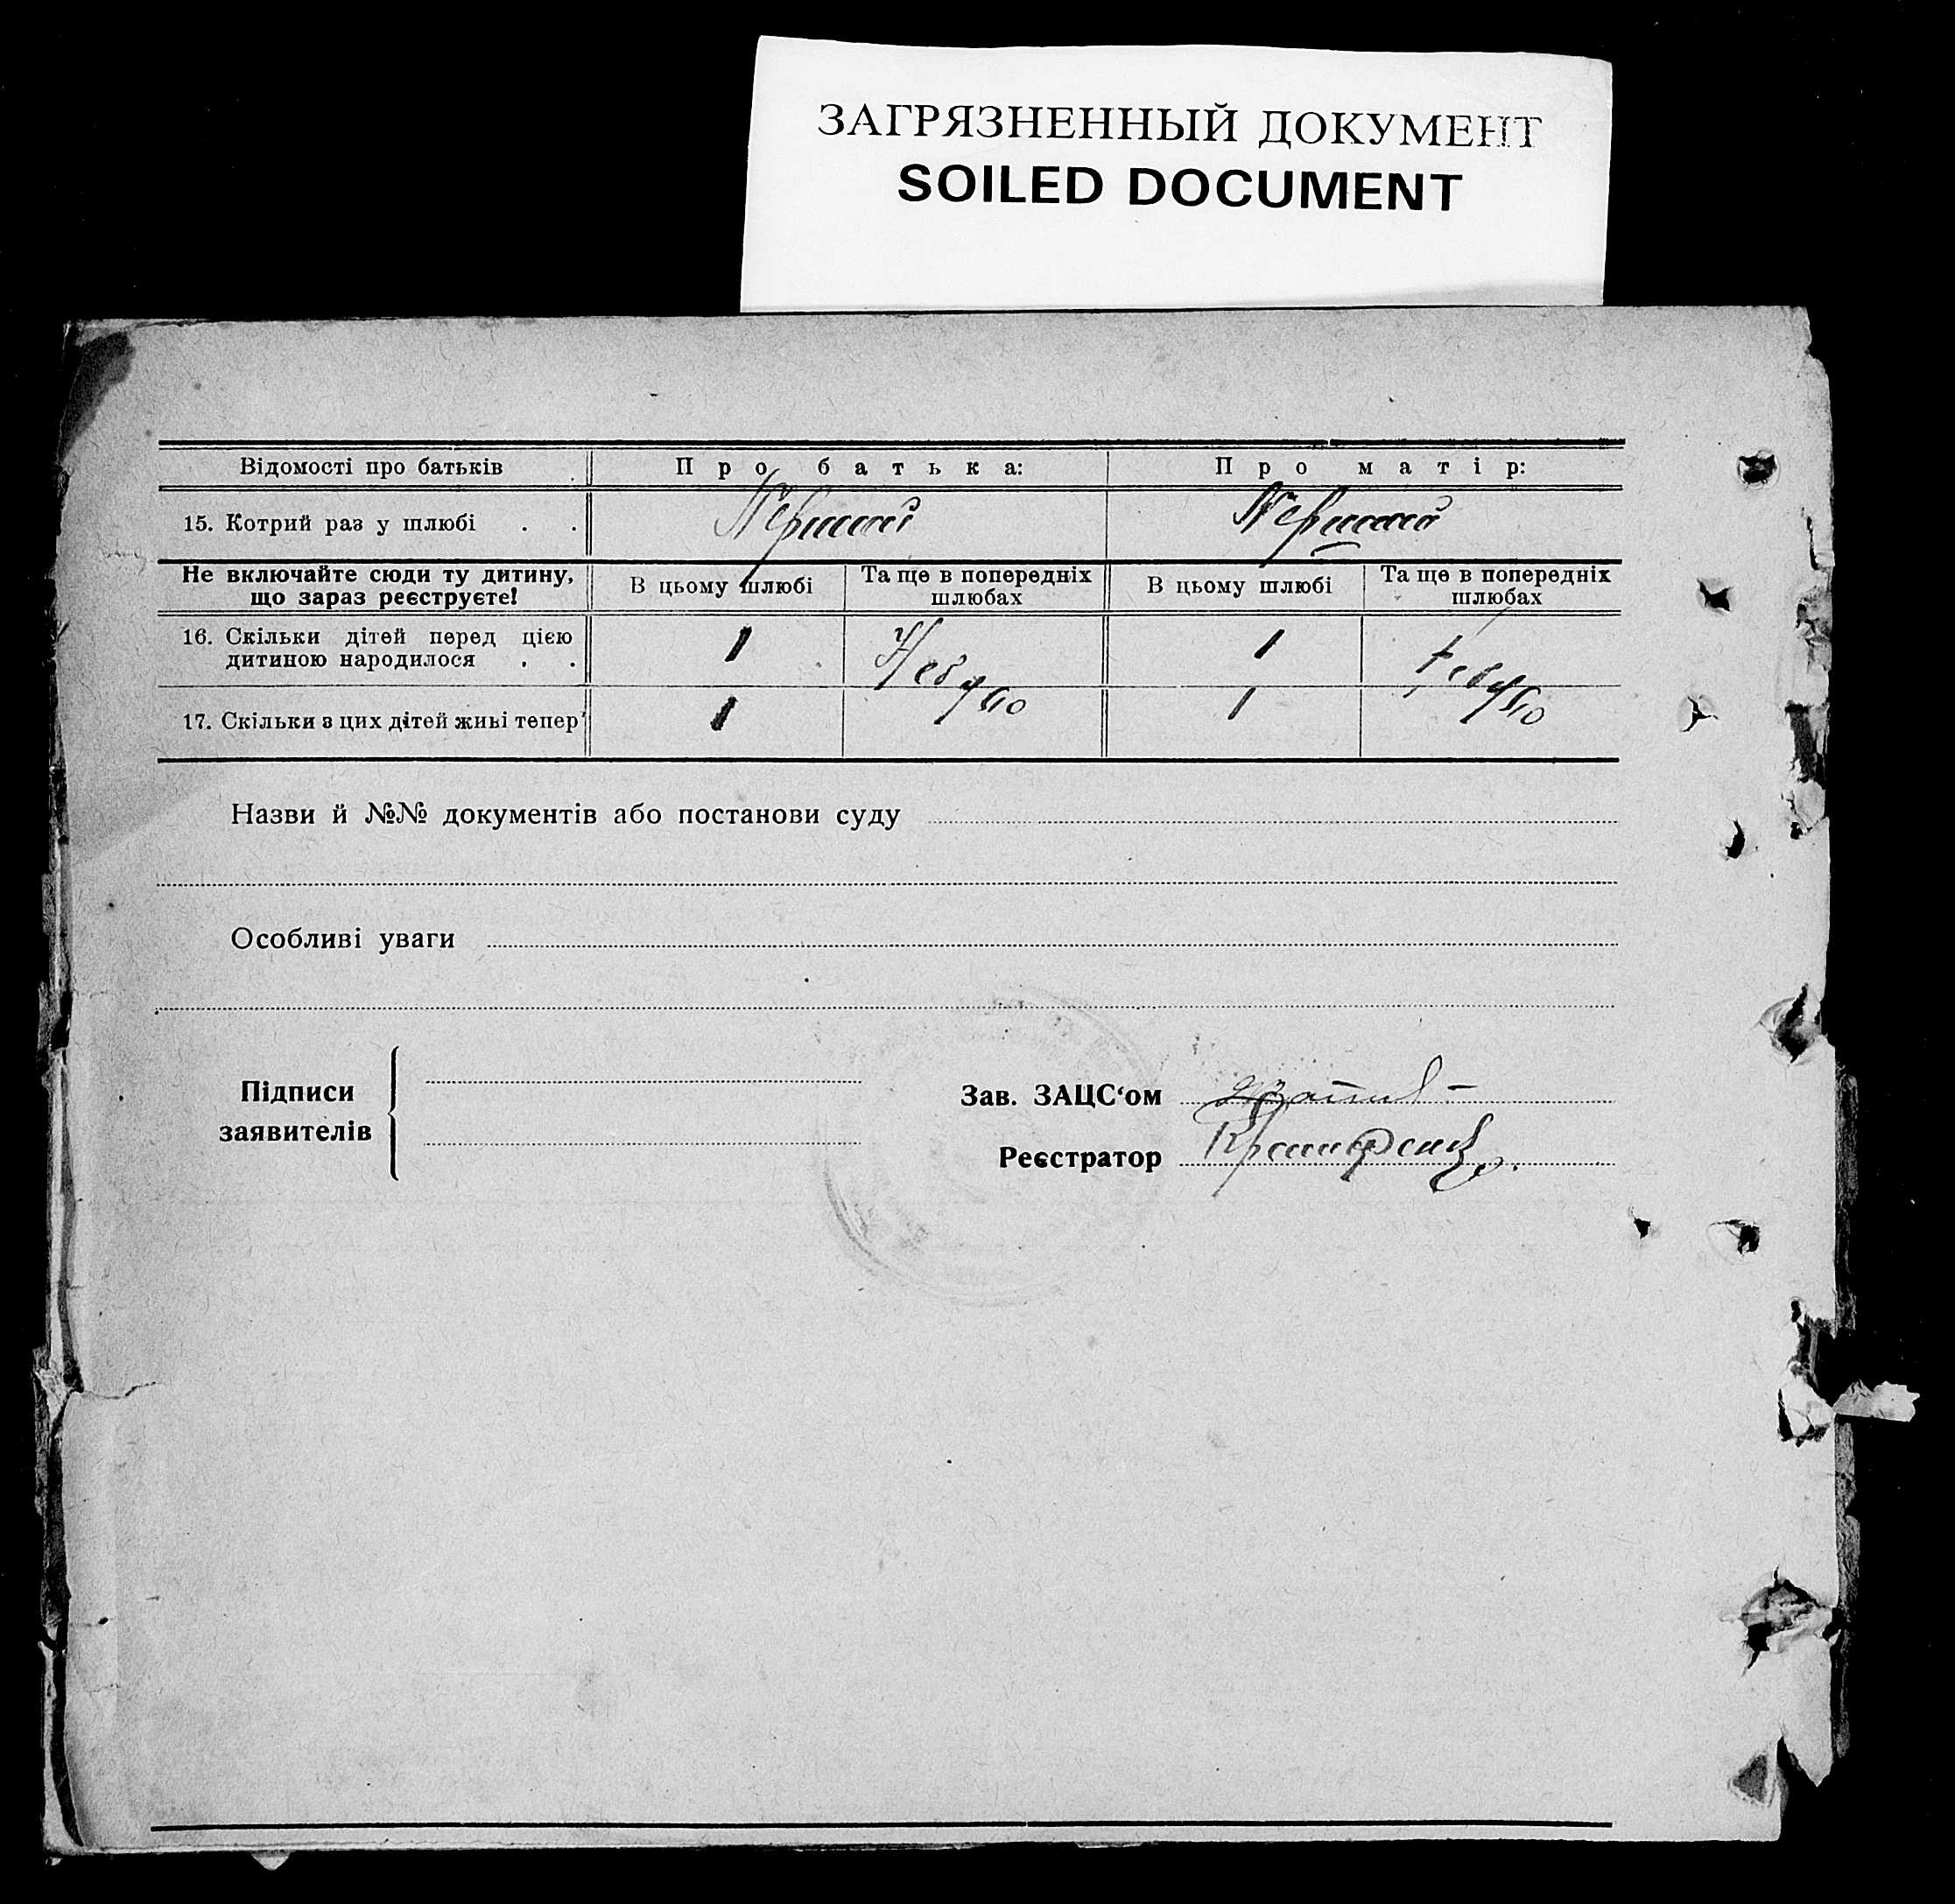 ЗАГРЯЗНЕННЫЙ ДОКУМЕНТ
SOILED DOCUMENT
Відомості про батьків . Про батька: Про матір:
15. Котрий раз у шлюбі . . Перший Перший
Не включайте сюди ту дитину, що зараз реєструєте! В цьому шлюбі Та ще в попередніх шлюбах В цьому шлюбі Та ще в попередніх шлюбах
16. Скільки дітей перед цією дитиною народилося . . 1 Не було 1 Не було
17. Скільки з цих дітей живі тепер 1 1
Назви й №№ документів або постанови суду
Особливі уваги
Підписи заявителів
Зав. ЗАЦС‘ом
Реєстратор